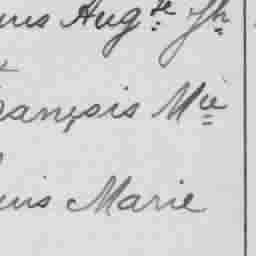 uis Augte Jh
rançois Mie
uis Marie